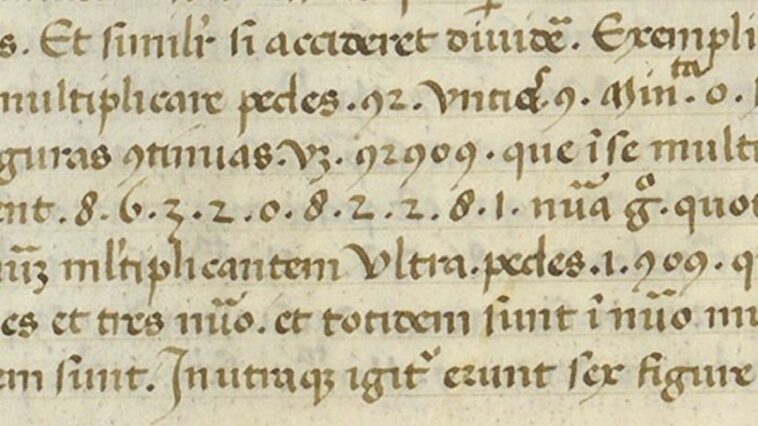 s. Et simil'r si accideret diuidē. Exempli
multiplicare pedes .92. Vntię 9. Min.ta 0.
guras ꝯtinuas. vꝫ. 92909. que ī se multi
ent .8.6.3.2.0.8.2.2.8.1. nūa gͦ. quot
nūꝫ ml'tiplicantem Vltra .pedes .1.909. q
es et tres nūo. et totidem sunt ī nūo mu
em sunt. In utraqꝫ igit' erunt sex figure